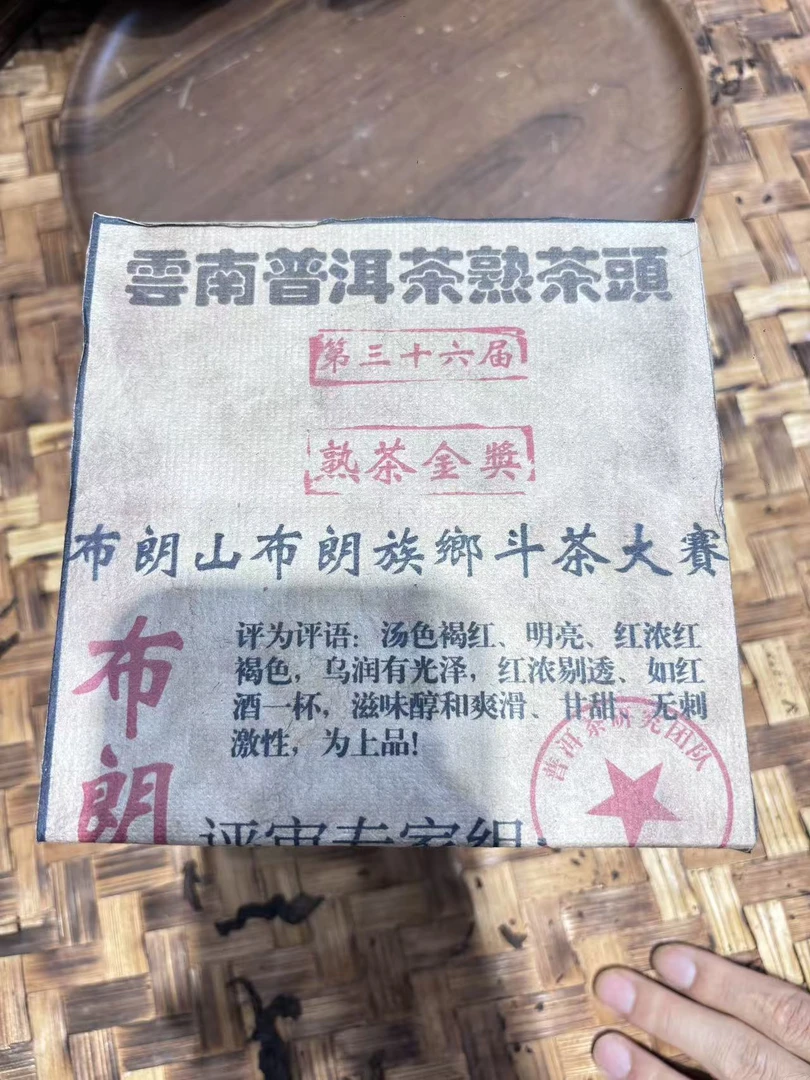 雲南普洱茶熟茶頭
第三十六届
熟茶金獎
布朗山布朗族鄉斗茶大賽
布朗
评为评语：汤色褐红、明亮、红浓红
褐色，乌润有光泽，红浓剔透、如红
酒一杯，滋味醇和爽滑、甘甜、无刺
激性，为上品！
普洱茶研究团队
评审专家组：